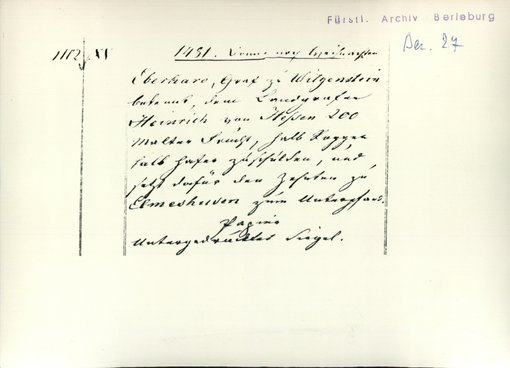 Fürstl. Archiv Berleburg
Dec. 27
1112 XV
1481. Donnerstag Weihnachten
Eberhard, Graf zu Witgenstein
bekennt, dem Landgrafen
Heinrich von Hessen 200
Malter Frucht, halb Roggen
halb Hafer zu schulden, und
setzt dafür den Zehnten zu
Elmeshusen zum Unterpfand.
Papier
Untergedrücktes Siegel.